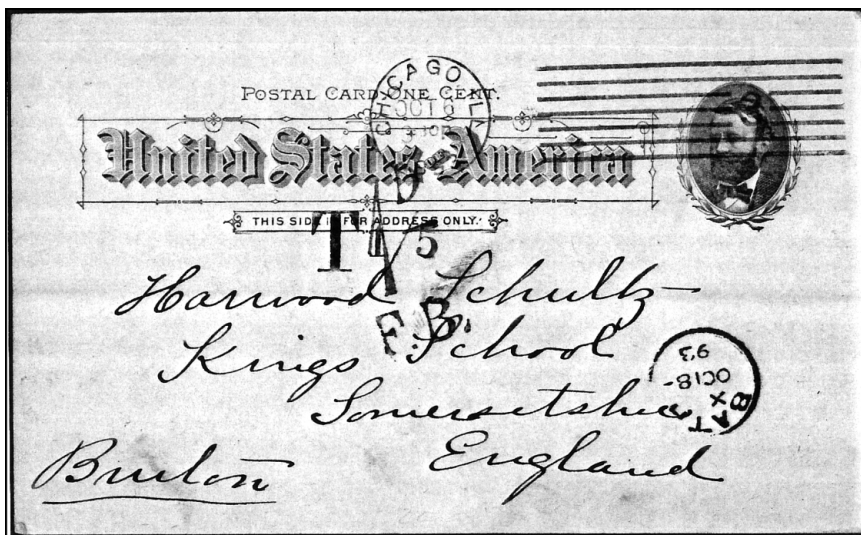 CHICAGO, ILL
OCT 6
POSTAL CARD ONE CENT.
United States of America
THIS SIDE IS FOR ADDRESS ONLY.
T
5
F.B.
Harwood Schultz
Kings School
Somersetshire
England
Bruton
BATH
X
OC 18
93